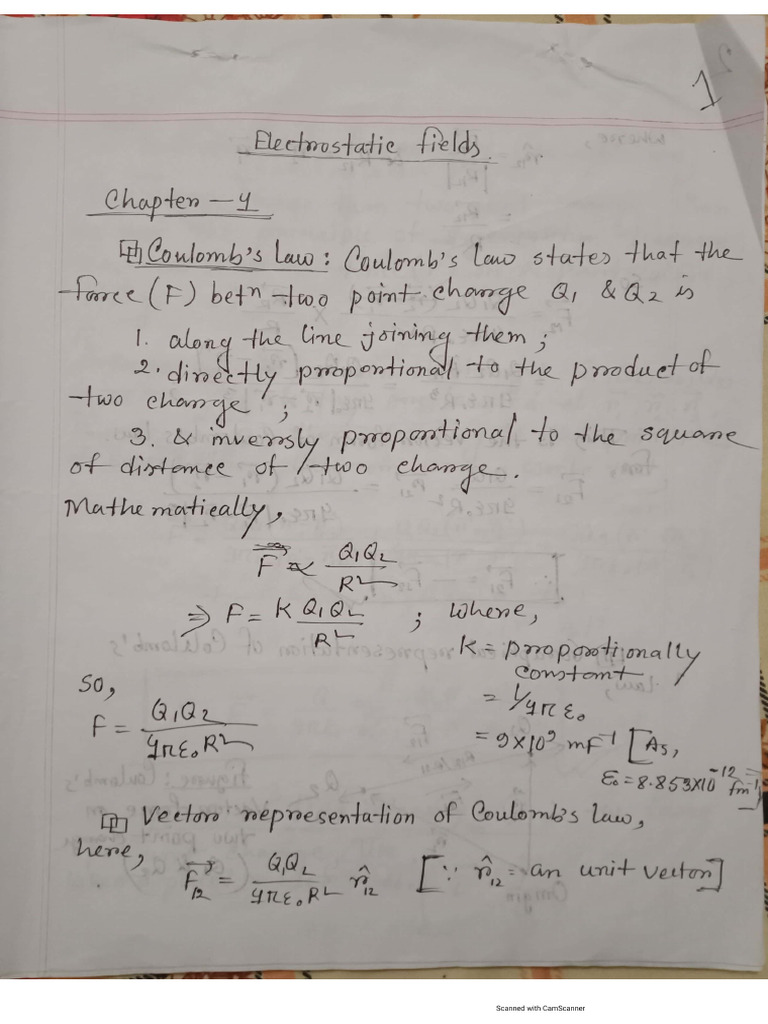 1
Electrostatic fields.
Chapter - 4
Coulomb's Law: Coulomb's law states that the
force (F) betn two point charge Q1 & Q2 is
1. along the line joining them;
2. directly proportional to the product of
two charge;
3. & inversly proportional to the square
of distance of two charge.
Mathematically,
F ∝ Q1Q2/R²
⇒ F = K Q1Q2/R² ; where,
K = proportionally
constant
= 1/4πε₀
= 9×10⁹ mF⁻¹ [As,
ε₀ = 8.853×10⁻¹² Fm⁻¹]
So,
F = Q1Q2/4πε₀R²
Vector representation of Coulomb's law,
here,
F⃗₁₂ = Q1Q2/4πε₀R² r̂₁₂ [∵ r̂₁₂ = an unit vector]
Scanned with CamScanner